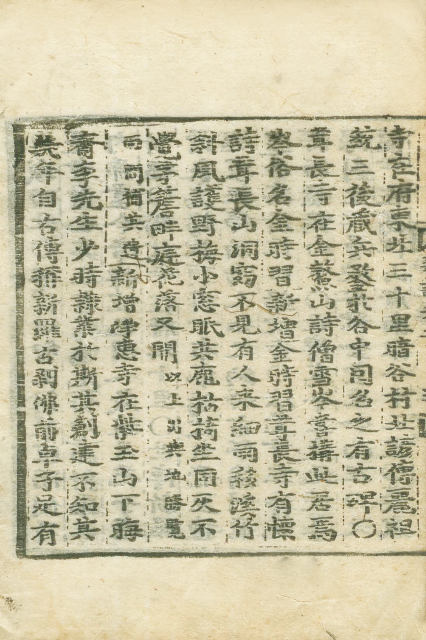 寺在府東北三十里暗谷村北諺傳麗祖
統三後藏兵鍪於谷中因名之有古碑〇
茸長寺在金鰲山詩僧雪岑嘗構此居焉
岑俗名金時習新增金時習茸長寺有懷
詩茸長山洞窈不見有人来細雨移溪竹
斜風護野梅小窓眠共鹿枯椅坐同灰不
覺茅簷畔庭花落又開以上出輿地勝覽
新增淨惠寺在紫玉山下晦
齋李先生少時隷業於斯其創建不知其
幾年自古傳稱新羅古刹佛前卓子足有